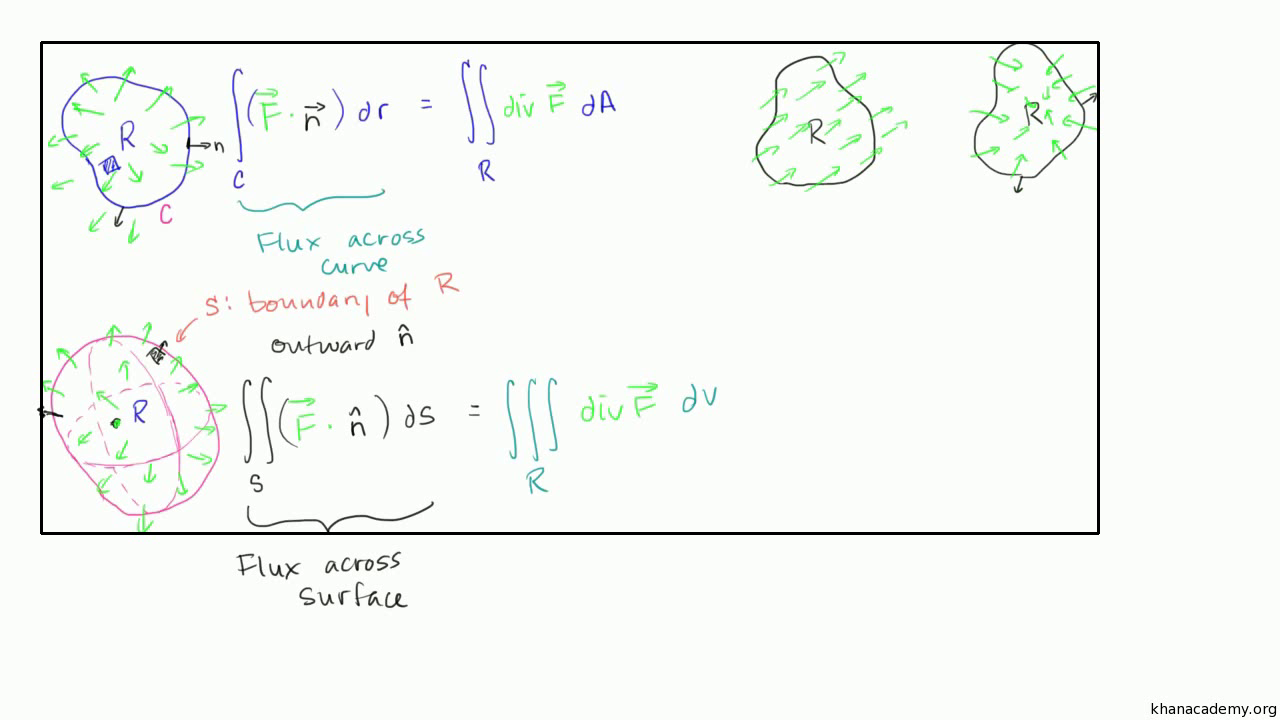 R
n
C
∫_C (F⃗ · n⃗) dr = ∬_R div F⃗ dA
R
R
Flux across
curve
S: boundary of R
outward n̂
R
∬_S (F⃗ · n̂) ds = ∭_R div F⃗ dv
Flux across
surface
khanacademy.org